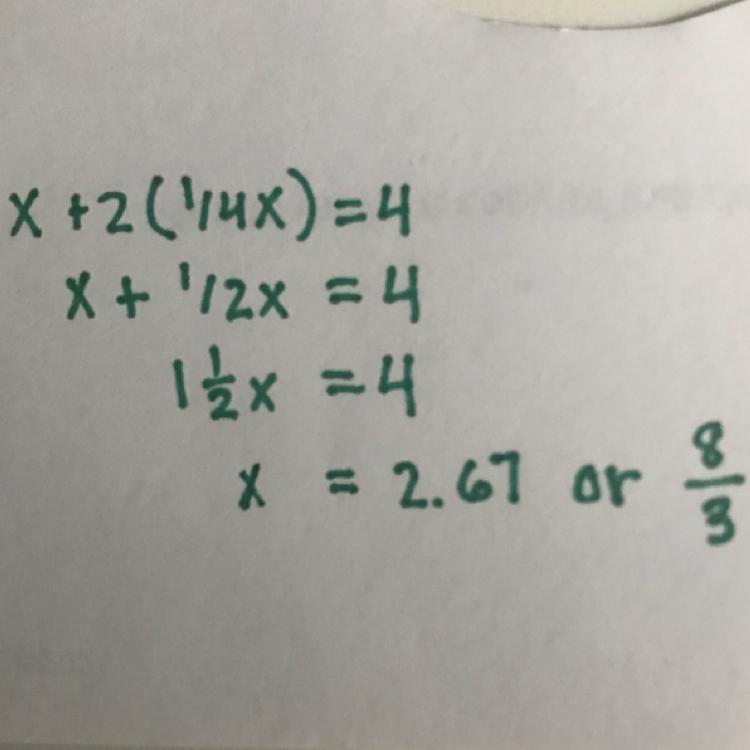 x + 2 (1/4x) = 4
x + 1/2x = 4
1 1/2 x = 4
x = 2.67 or 8/3